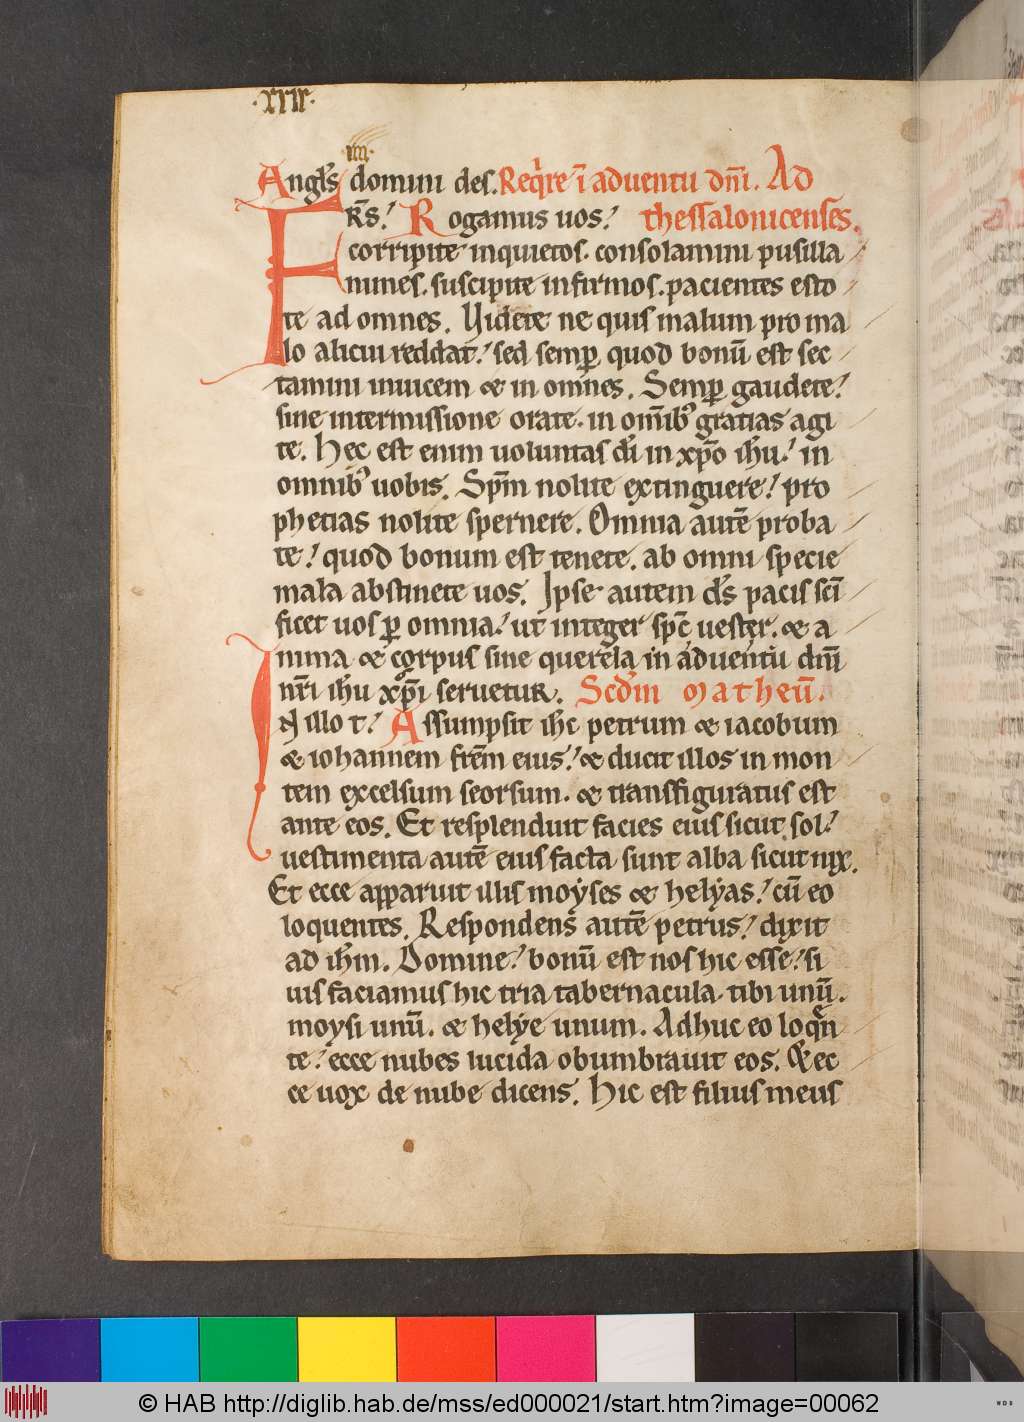 ·xxix·
iiii·
Angl's domini des. Req're ī aduentu dn̄i. Ad
FRs̄. Rogamus uos. thessalonicenses.
corripite inquietos. consolamini pusilla
nimes. suscipite infirmos. pacientes esto
te ad omnes. Videte ne quis malum pro ma
lo alicui reddat. sed semꝑ quod bonū est sec
tamini inuicem & in omnes. Semꝑ gaudete.
sine intermissione orate. in om̄ibꝰ gratias agi
te. Hec est enim uoluntas di̅ in xp̅o ihu̅. in
omnibꝰ uobis. Sp̅m nolite extinguere. pro
phetias nolite spernere. Omnia autē proba
te. quod bonum est tenete. ab omni specie
mala abstinete uos. Ipse autem ds̅ pacis sc̅i
ficet uos ꝑ omnia. ut integer spc̅ uester. & a
nima & corpus sine querela in aduentu dn̅i
nr̅i ihu̅ xp̅i seruetur. Scd̅m Matheū.
IN illo t. Assumpsit ihc̅ petrum & iacobum
& iohannem fr̅em eius. & ducit illos in mon
tem excelsum seorsum. & transfiguratus est
ante eos. Et resplenduit facies eius sicut sol.
uestimenta autē eius facta sunt alba sicut nix.
Et ecce apparuit illis moyses & helyas. cū eo
loquentes. Respondens autē petrus. dixit
ad ihm̅. Domine. bonū est nos hic esse. si
uis faciamus hic tria tabernacula. tibi unū.
moysi unū. & helye unum. Adhuc eo loqn̅
te. ecce nubes lucida obumbrauit eos. & ec
ce uox de nube dicens. Hic est filius meus
© HAB http://diglib.hab.de/mss/ed000021/start.htm?image=00062